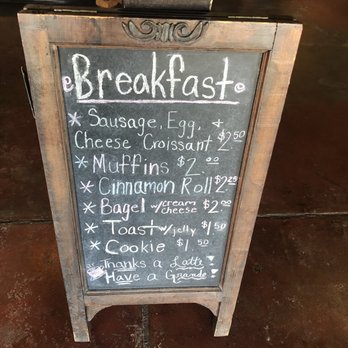 Breakfast
* Sausage, Egg, +
Cheese Croissant $2.50
* Muffins $2.00
* Cinnamon Roll $2.25
* Bagel w/cream cheese $2.00
* Toast w/jelly $1.50
* Cookie $1.50
Thanks a Latte!
Have a Grande!